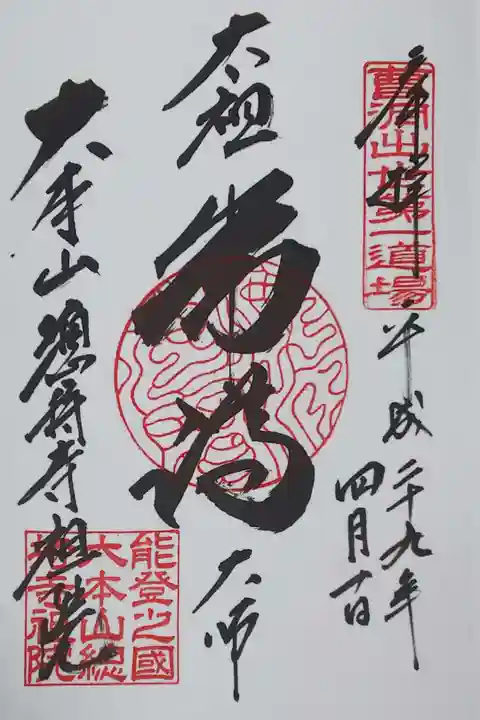 奉拝
曹洞出世第一道場
平成二十九年
四月十日
太祖
常済
大師
大本山總持寺祖院
能登之國
大本山総
持寺祖院